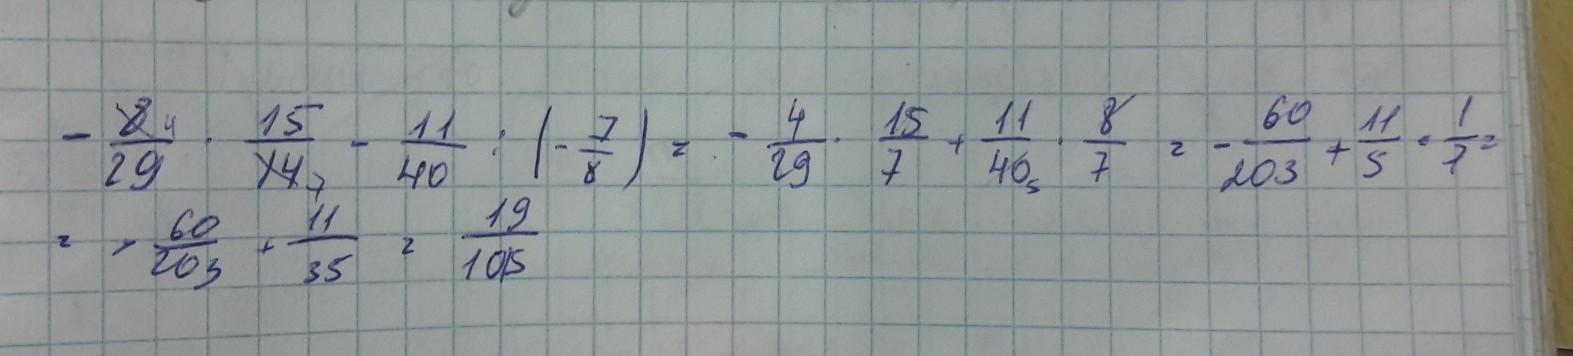 - 8 4/29 · 15/14 7 - 11/40 : (- 7/8) = - 4/29 · 15/7 + 11/40 5 · 8/7 = - 60/203 + 11/5 · 1/7 =
= - 60/203 + 11/35 = 19/105